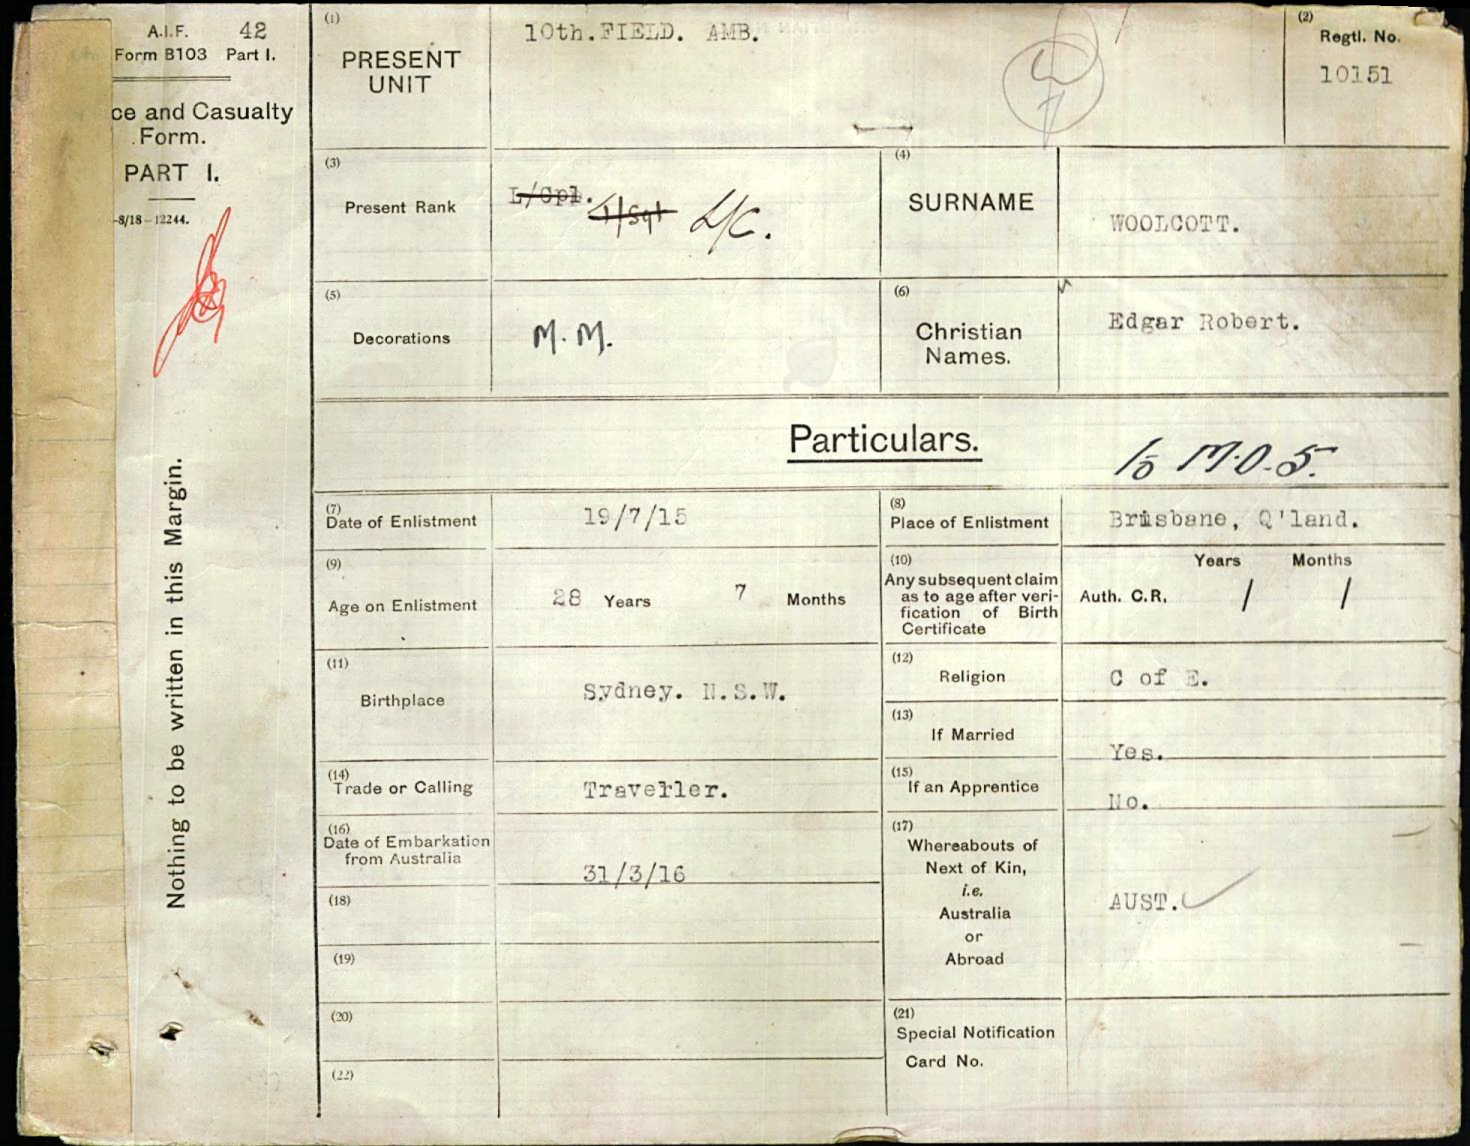 A.I.F. 42
Form B103 Part I.
ce and Casualty
Form.
PART I.
-8/18-12244.
Nothing to be written in this Margin.
(1)
PRESENT
UNIT
10th.FIELD. AMB.
(2)
Regtl. No.
10151
(3)
Present Rank
L/Cpl.
L/Sgt
L/C.
(4)
SURNAME
WOOLCOTT.
(5)
Decorations
M.M.
(6)
Christian
Names.
Edgar Robert.
Particulars.
To M.O.5.
(7)
Date of Enlistment
19/7/15
(8)
Place of Enlistment
Brisbane, Q'land.
(9)
Age on Enlistment
28 Years 7 Months
(10)
Any subsequent claim
as to age after veri-
fication of Birth
Certificate
Years Months
Auth. C.R. / /
(11)
Birthplace
Sydney. N.S.W.
(12)
Religion
C of E.
(13)
If Married
Yes.
(14)
Trade or Calling
Traveller.
(15)
If an Apprentice
No.
(16)
Date of Embarkation
from Australia
31/3/16
(17)
Whereabouts of
Next of Kin,
i.e.
Australia
or
Abroad
AUST.
(18)
(19)
(20)
(21)
Special Notification
Card No.
(22)